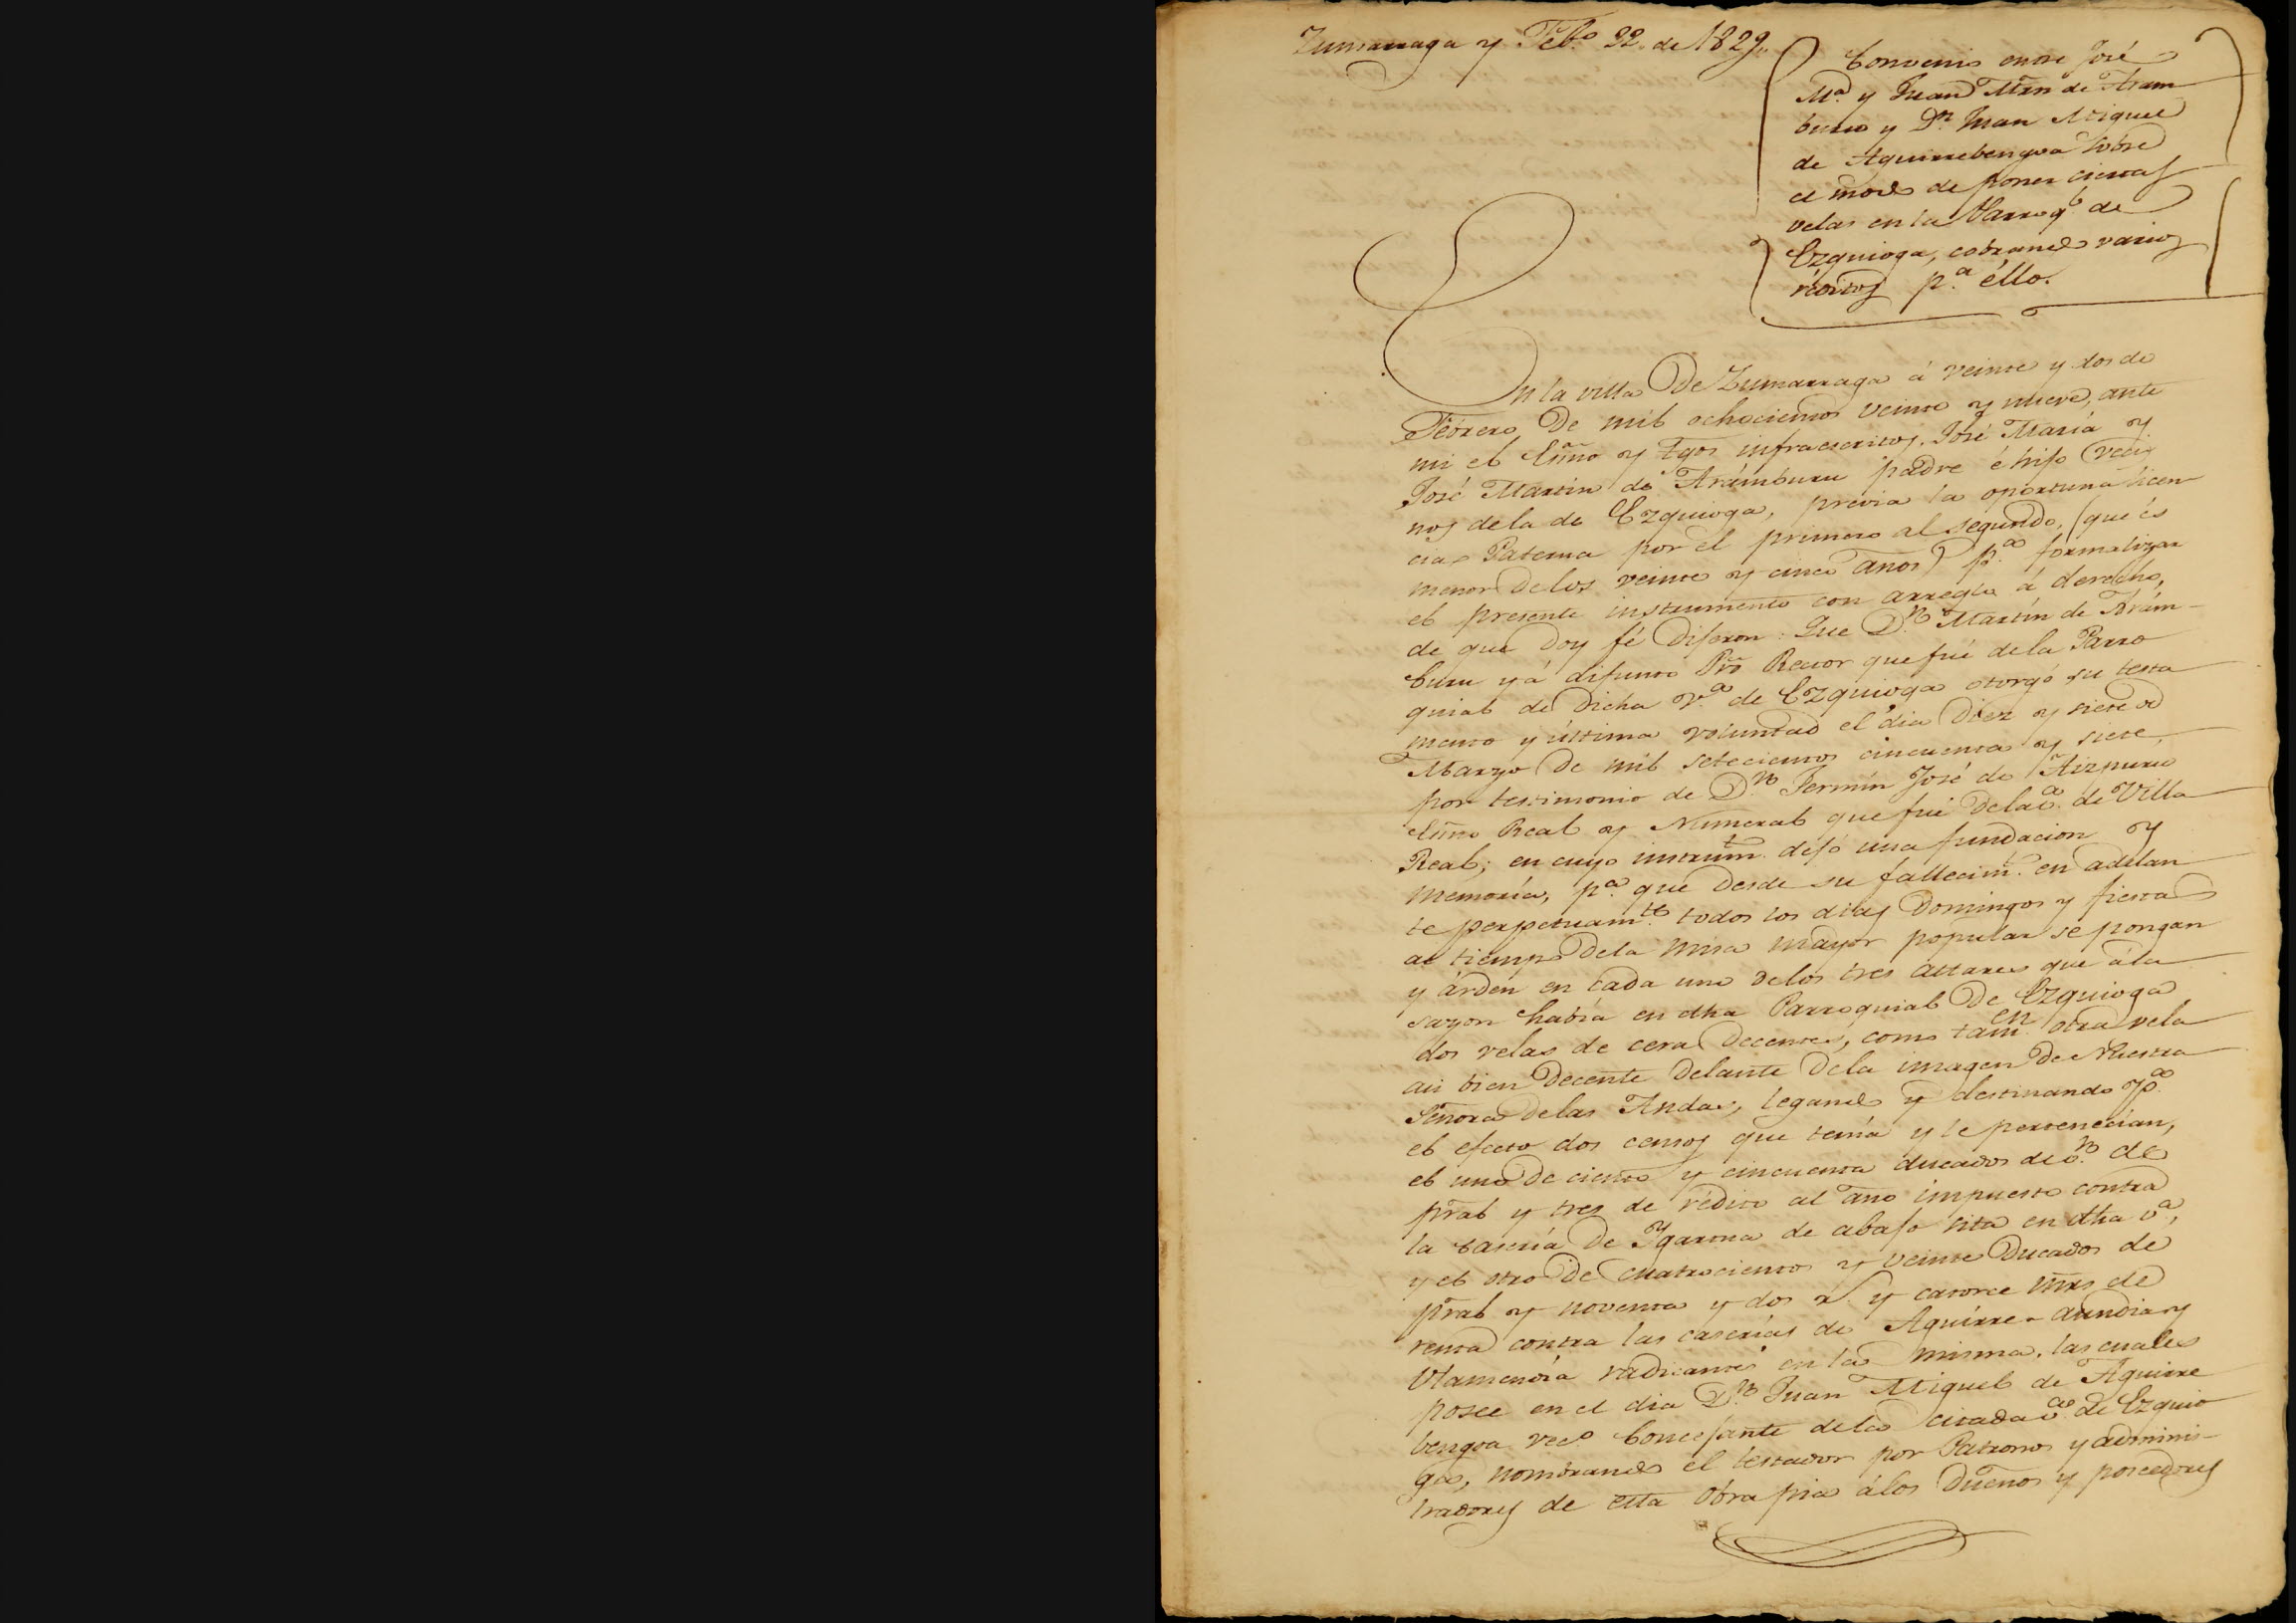 Zumarraga y Feb.º 22. de 1829.
Convenio entre José
M.ª y Juan Mrn de Aram
buru y D.n Juan Miguel
de Aguirrebengoa sobre
el modo de poner ciertas
velas en la Parroq.l de
Ezquioga, cobrando varios
réditos p.a éllo.
En la villa De Zumarraga á veinte y dos de
Febrero De mil ochocientos veinte y nueve, ante
mi el Essno y Tgos infraescritos, José María y
José Martin de Arámburu padre é hijo veci
nos dela de Ezquioga, previa la oportuna licen
cia Paterna por el primero al segundo, (que és
menor Delos veinte y cinco años) p.a formalizar
el presente instrumento con arreglo á derecho,
de que Doy fé Dijeron: Que D.n Martín de Arám-
buru yá difunto Pro Rector que fué dela Parro
quial de Dicha V.a de Ezquioga otorgó su testa
mento y última voluntad el dia Diez y siete de
Marzo De mil setecientos cincuenta y siete,
por testimonio de D.n Fermín José de Aizpuru
Essno Real y Numeral que fué Dela v.a de Villa
Real; en cuyo instrum.t dejó una fundacion y
Memoría, p.a que Desde su fallecim.t en adelan
te perpetuam.te todos los dias Domingos y fiestas
al tiempo Dela misa mayor popular se pongan
y árden en cada uno Delos tres altares que á la
sazon habia en dha Parroquial De Ezquioga
dos velas de cera Decentes, como tam.en otra vela
asi bien Decente Delante Dela imagen De Nuestra
Señora Delas Andas, legando y destinando p.a
el efecto dos censos que tenía y le pertenecían,
el uno De ciento y cincuenta ducados de v.n de
pral y tres de rédito al año impuesto contra
la casería De Ygarona de abajo sita en dha v.a,
y el otro De cuatrocientos y veinte Ducados de
pral y noventa y dos r.s y catorce mrs de
renta contra las caserías de Aguirre-aundia y
Otamendia radicantes en la misma, las cuales
posee en el dia D.n Juan Miguel de Aguirre
bengoa vec.o Concejante dela citada v.a de Ezquio
ga, nombrando el testador por Patronos y adminis-
tradores de esta Obra pia á los Dueños y poseedores